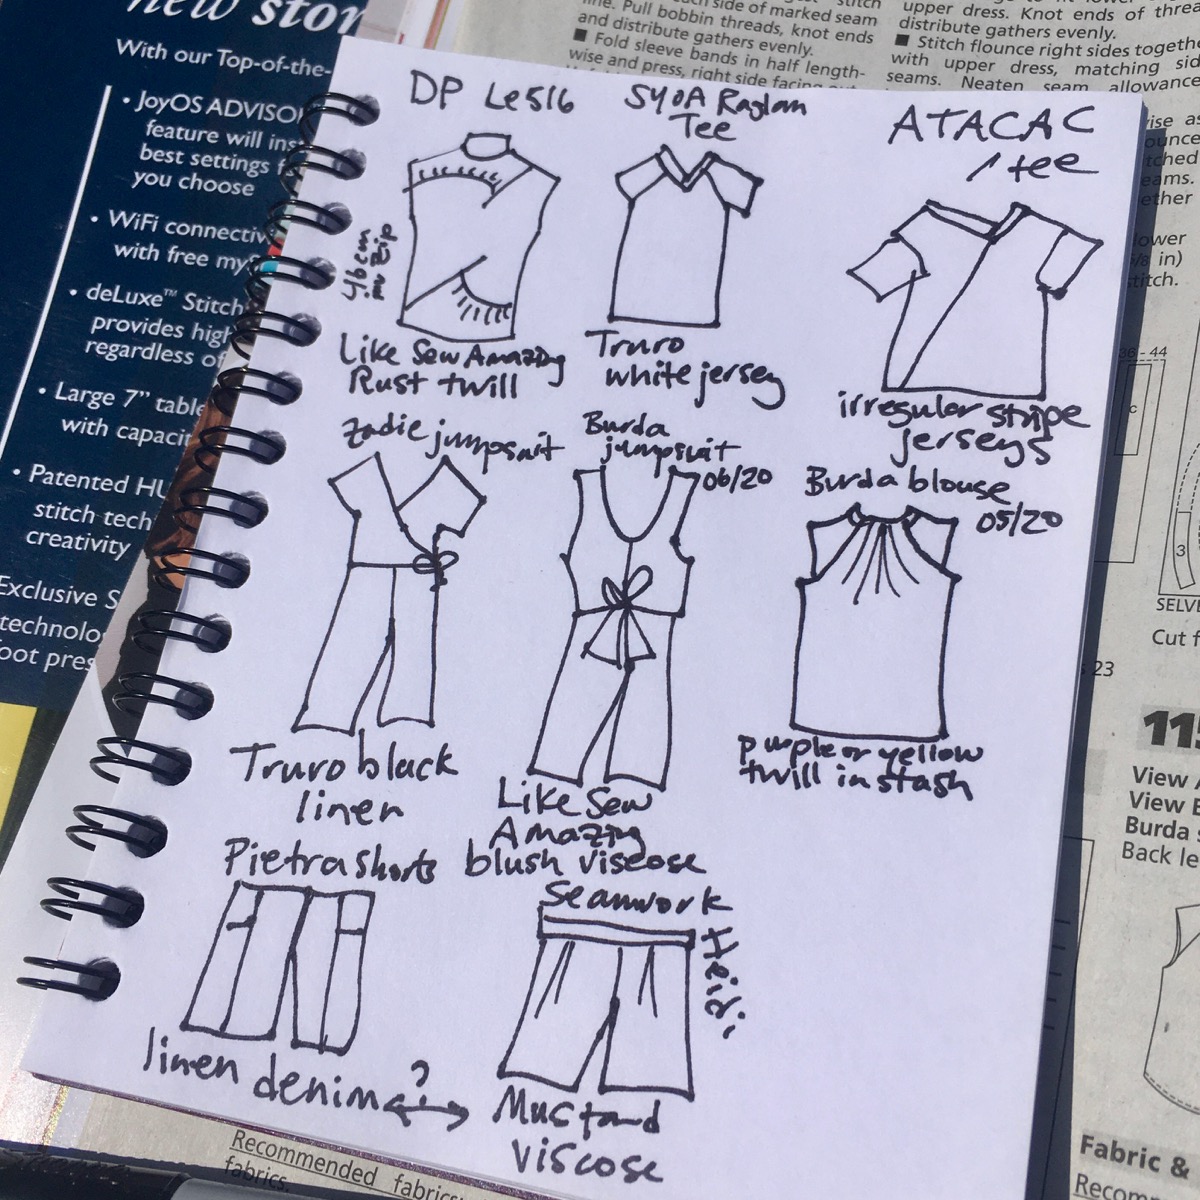 new stor
With our Top-of-the-
• JoyOS ADVISO
feature will ins
best settings
you choose
• WiFi connectiv
with free my
• deLuxe™ Stitch
provides high
regardless of
• Large 7” table
with capacit
• Patented HU
stitch tech
creativity
Exclusive S
technolo
oot pres
side of marked seam
line. Pull bobbin threads, knot ends
and distribute gathers evenly.
■ Fold sleeve bands in half length-
wise and press, right side facing
upper dress. Knot ends of threa
distribute gathers evenly.
■ Stitch flounce right sides togethe
with upper dress, matching sid
seams. Neaten seam allowance
DP Le516
46cm
inv zip
Like Sew Amazing
Rust twill
SYOA Raglan
Tee
Truro
white jersey
ATACAC
tee
irregular stripe
jerseys
Zadie jumpsuit
Truro black
linen
Burda
jumpsuit
06/20
Like Sew
Amazing
blush viscose
Burda blouse
05/20
purple or yellow
twill in stash
Pietra shorts
linen denim ?
Seamwork
Heidi
Mustard
viscose
ise as
ounce
tched
eams.
ether
lower
/8 in)
titch.
36 - 44
c
3
SELVE
Cut f
23
115
View A
View B
Burda s
Back le
Fabric &
Recom
Recommended fabrics
fabrics.